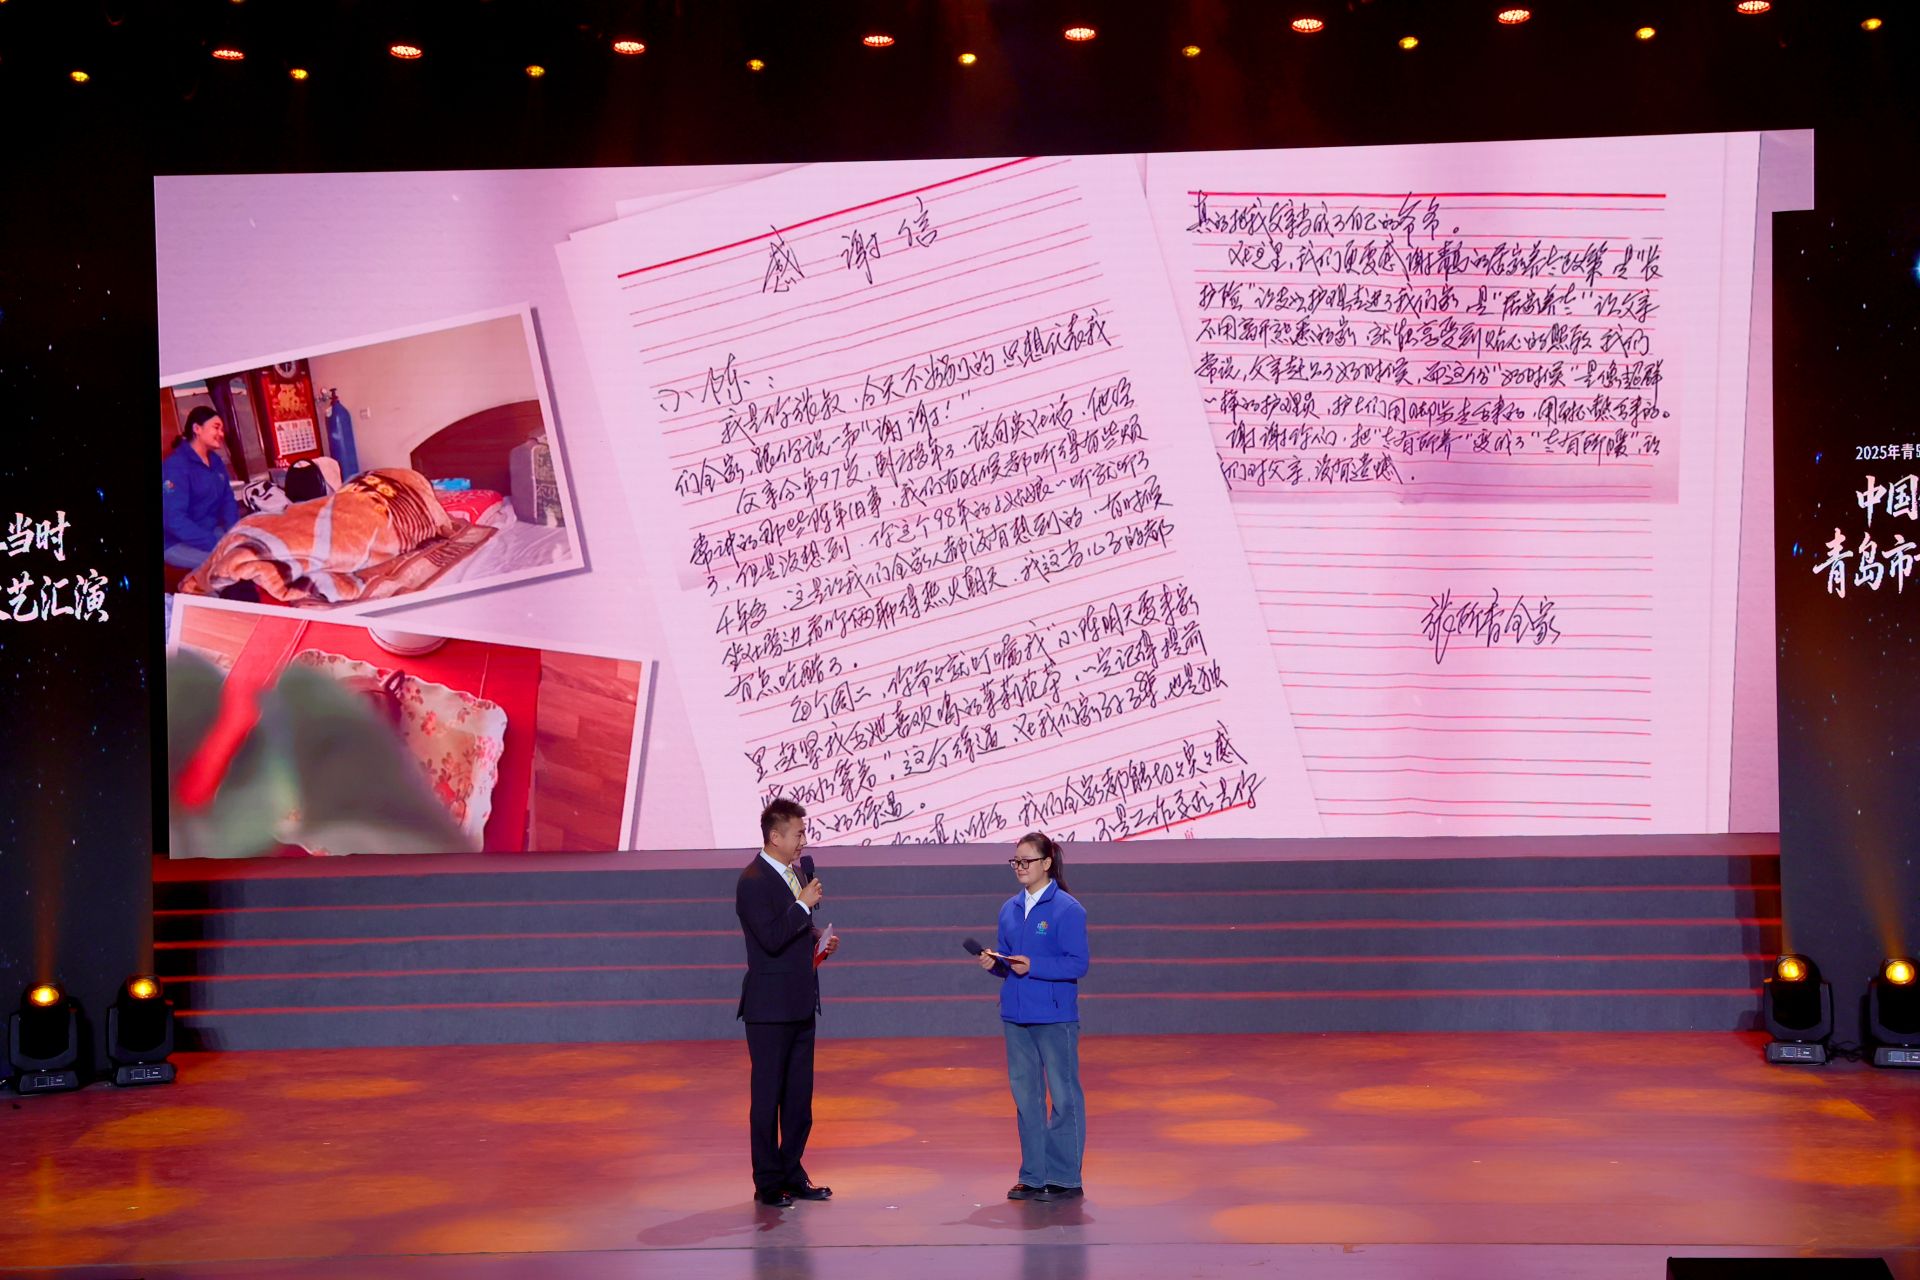 当时
艺汇演
感谢信
小陈：
我是你张叔，今天不为别的，只想代表我
们全家，跟你说一声"谢谢！"
父亲今年97岁，卧床多年了，说句实在话，他经
常讲的那些陈年旧事，我们有时候都听得有些烦
了，但是没想到，你这个98年的小姑娘一听就听了
4年多，这是让我们全家人都没有想到的，有时候
坐在旁边看你俩聊得热火朝天，我这当儿子的都
有点吃醋了。
每个周二，你爷爷就叮嘱我"小陈明天要来家
里，赶紧找出她喜欢喝的茉莉花茶，一定记得提前
等着。"这个待遇，在我们家 ，也是独
的待遇。
我们全家都能切实感
真的把我父亲当成了自己的爷爷。
在这里，我们更要感谢青岛的居家养老政策，是"长
护险"让专业护理走进了我们家，是"居家养老"让父亲
不用离开熟悉的家，就能享受到贴心的照顾，我们
常说，父亲赶上了好时候，而这份"好时候"是像 群
一样的护理员，护士们用脚步走出来的，用 出来的。
谢谢你们，把"老有所养"变成了"老有所暖"，让
我们对父亲，没有遗憾。
张所青全家
2025年青岛
中国
青岛市